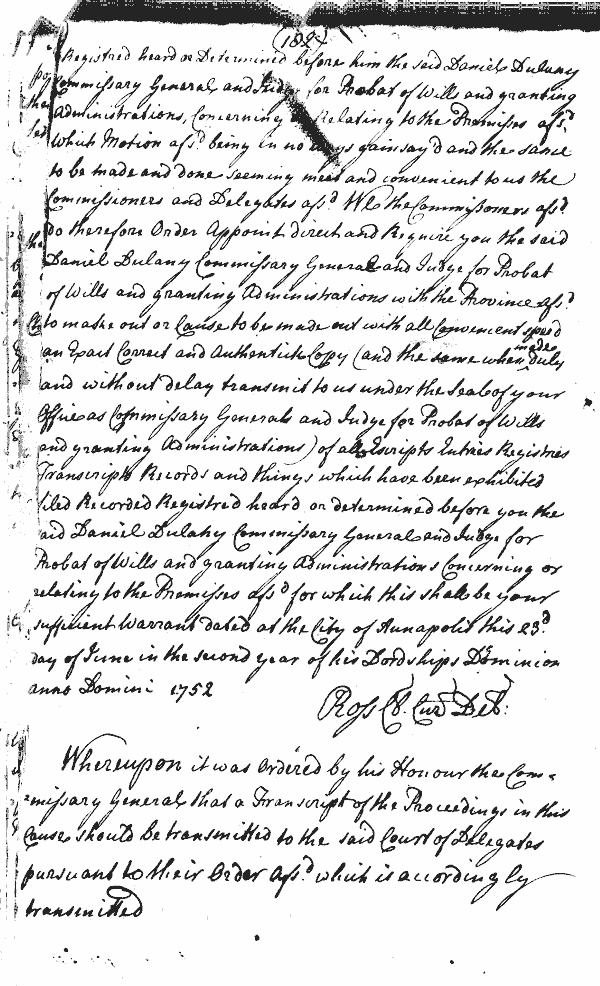 (182)
Registred heard or Determined before him the said Daniel Dulany
Commissary General and Judge for Probat of Wills and granting
Administrations, Concerning or Relating to the Premisses afs.d
Which Motion afs.d being in no ways gainsay'd and the same
to be made and done seeming meet and convenient to us the
Commissioners and Delegates afs.d We the Commissioners afs.d
do therefore Order Appoint direct and Require you the said
Daniel Dulany Commissary General and Judge for Probat
of Wills and granting Administrations with the Province afs.d
to make out or Cause to be made out with all Convenient speed
an Exact Correct and Authentick Copy (and the same when made duly
and without delay transmit to us under the Seal of your
Office as Commissary General and Judge for Probat of Wills
and granting Administrations) of all Escripts Entries Registries
Transcripts Records and things which have been exhibited
filed Recorded Registred heard or determined before you the
said Daniel Dulany Commissary General and Judge for
Probat of Wills and granting Administrations Concerning or
relating to the Premisses afs.d for which this shall be your
sufficient Warrant dated at the City of Annapolis this 23.d
day of June in the second year of his Lordships Dominion
anno Domini 1752
Ross Cl. Cur. Del:
Whereupon it was Ordered by his Honour the Com=
=missary General that a Transcript of the Proceedings in this
Cause should be transmitted to the said Court of Delegates
pursuant to their Order Afs.d which is accordingly
transmitted